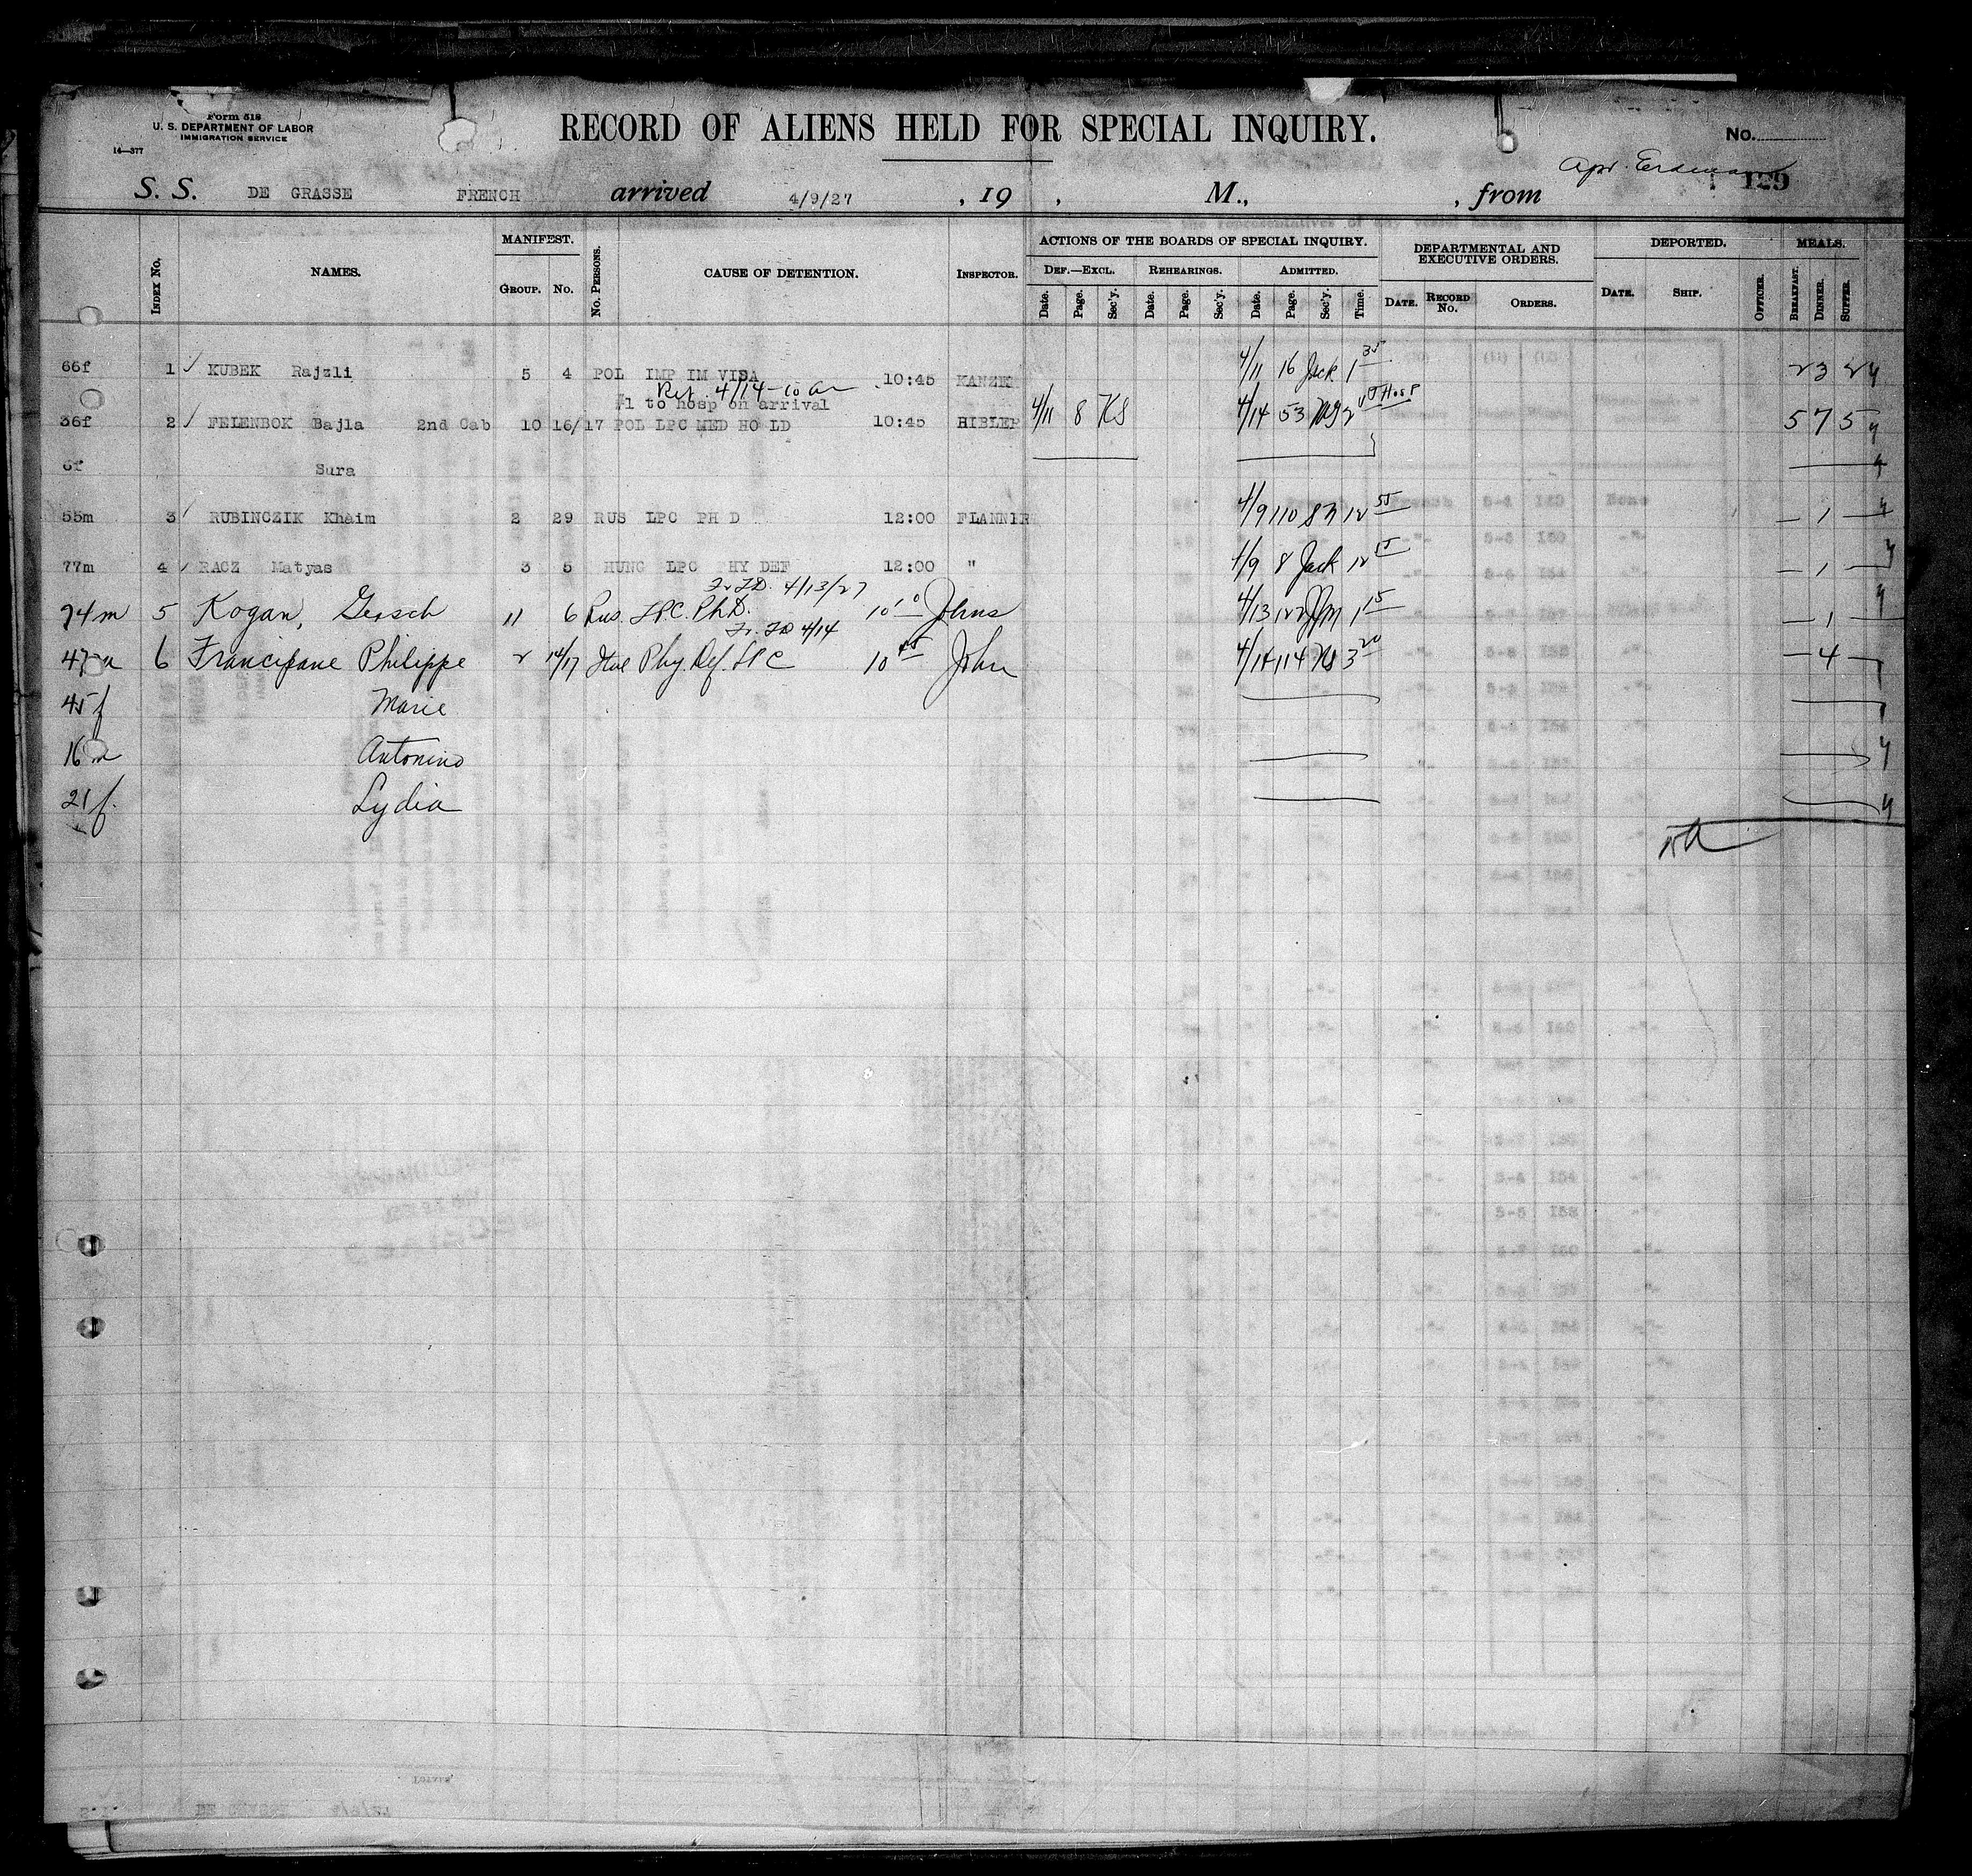 Form 518
U. S. DEPARTMENT OF LABOR
IMMIGRATION SERVICE
14—377
RECORD OF ALIENS HELD FOR SPECIAL INQUIRY.
No.
129
S. S. DE GRASSE FRENCH arrived 4/9/27 , 19 , M., , from
Index No. NAMES. MANIFEST. Group. No. No. Persons. CAUSE OF DETENTION. Inspector. ACTIONS OF THE BOARDS OF SPECIAL INQUIRY. DEPARTMENTAL AND EXECUTIVE ORDERS. DEPORTED. MEALS.
Def.—Excl. Rehearings. Admitted.
Date. Page. Sec'y. Date. Page. Sec'y. Date. Page. Sec'y. Time. Date. Record No. Orders. Date. Ship. Officer. Breakfast. Dinner. Supper.
66f 1 KUBEK Rajzli 5 4 POL IMP IM VISA 10:45 4/11 16 Jack 1 35 2 3 2 4
Ret. 4/14 - 10 am
#1 to hosp on arrival
36f 2 FEIENBOK Bajla 2nd Cab 10 16/17 POL LPC MED HO LD 10:45 HIBLER 4/11 8 KS 4/14 53 2 5 7 5 4
6f Sura 4
55m 3 RUBINCZIK Khaim 2 29 RUS LPC PH D 12:00 FLANNIR 4/9 110 12 55 — 1 — 4
77m 4 RACZ Matyas 3 5 HUNG LPC PHY DEF 12:00 " 4/9 8 Jack 12 — 1 — 4
Tr. TD. 4/13/27
74m 5 Kogan, Gersch 11 6 Rus. LPC. Ph.D. 10 10 Johns 4/13 122 1 15 — 1 — 4
Tr. TD 4/14
6 Francipane Philippe 2 14/17 Phy. Def. LPC 10 45 John 4/14 114 KS 3 20 — 4 —
45f Marie
16m Antonino 4
21f. Lydia 4